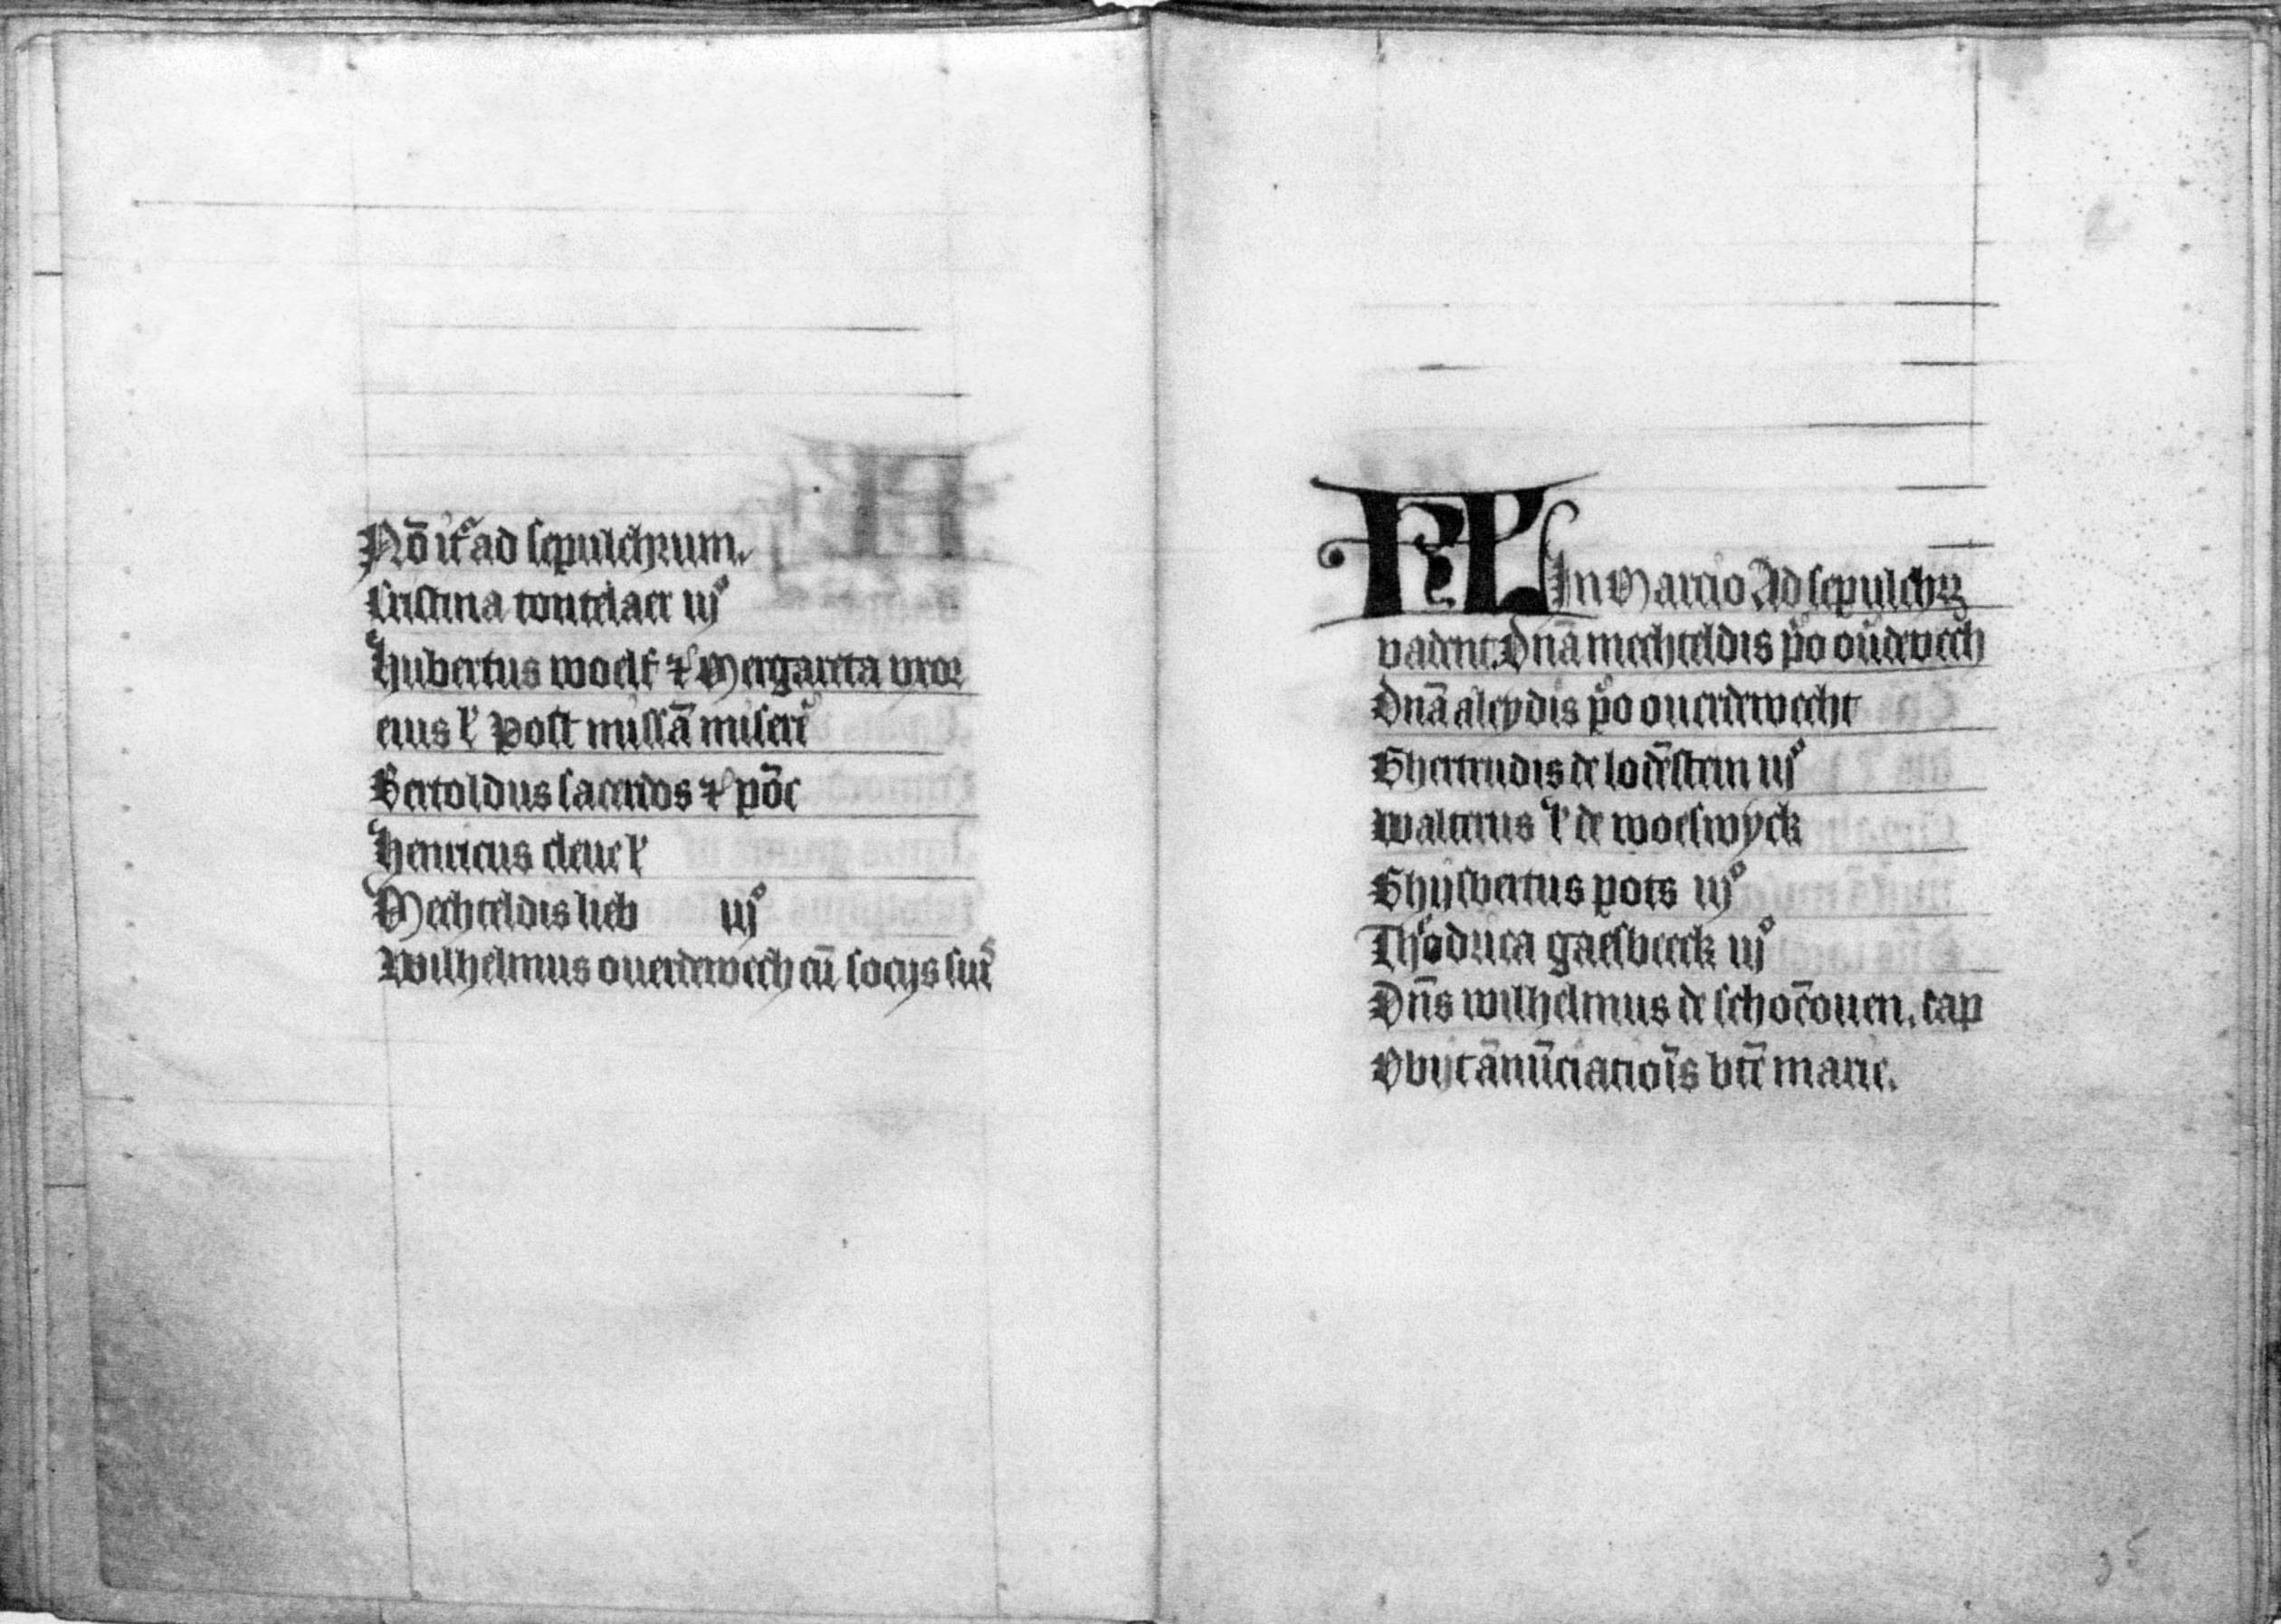 Nō itͬ ad sepulchrum.
Cristina contelaer iijᵒ
Hubertus woelf ⁊ Mergareta vxor
eius l' post missā miserͥ
Bertoldus sacerdos ⁊ pōc
Henricus cleue l'
Mechteldis lieb iijᵒ
Wilhelmus ouerdewech cū socijs suis
KL In Marcio Ad sepulchꝝ
vadent. Dn̄a mechteldis pͦo ou̇dewech
Dn̄a aleydis pͦo ouerdewecht
Ghertrudis de lodēstein iijᵒ
Walterus l' de woeswyck
Ghijsbertus pots iijᵒ
Theodrica gaesbeeck iijᵒ
Dn̄s wilhelmus de schoēouen. cap
Obijt ānūciatiōis btē marie.
35